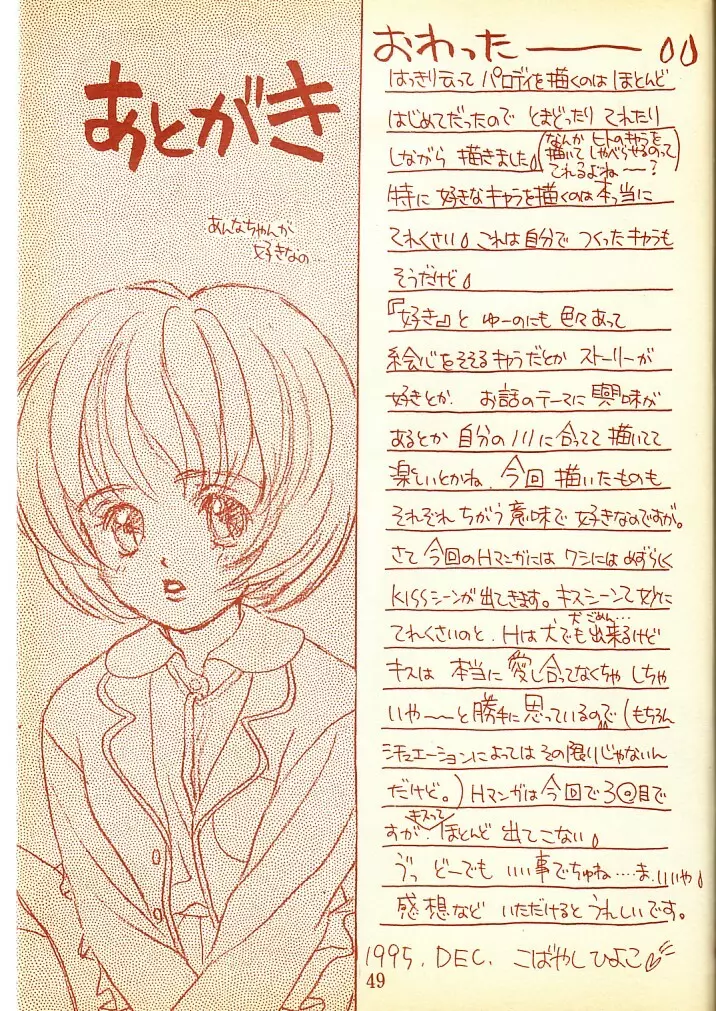 あとがき
あんなちゃんが
好きなの…
おわった――
はっきり云って パロディを描くのは ほとんど
はじめてだったので とまどったり てれたり
しながら 描きました
(なんか ヒトのキャラを
描いて しゃべらせるのって
てれるよね〜〜?)
特に 好きなキャラを描くのは 本っ当に
てれくさい。これは自分で つくったキャラも
そうだけど。
『好き』と ゆーのにも 色々あって
絵心をそそるキャラだとか ストーリーが
好きとか. お話のテーマに 興味が
あるとか 自分のノリに合ってて 描いてて
楽しいとかね. 今回 描いたものも
それぞれ ちがう意味で 好きなのですが。
さて 今回のHマンガには ワシには めずらしく
KISSシーンが出てきます。キスシーンて妙に
犬 ごめん…
てれくさいのと. Hは犬でも出来るけど
キスは 本当に 愛し合ってなくちゃ しちゃ
いや〜〜と勝手に思っているので(もちろん
シチュエーションによっては その限りじゃないん
だけど。)Hマンガは今回で3回目で
キスって
すが. ほとんど 出てこない。
うっ どーでも いい事でちゅね……ま.いいや
感想など いただけると うれしいです。
1995. DEC. こばやしひよこ
49